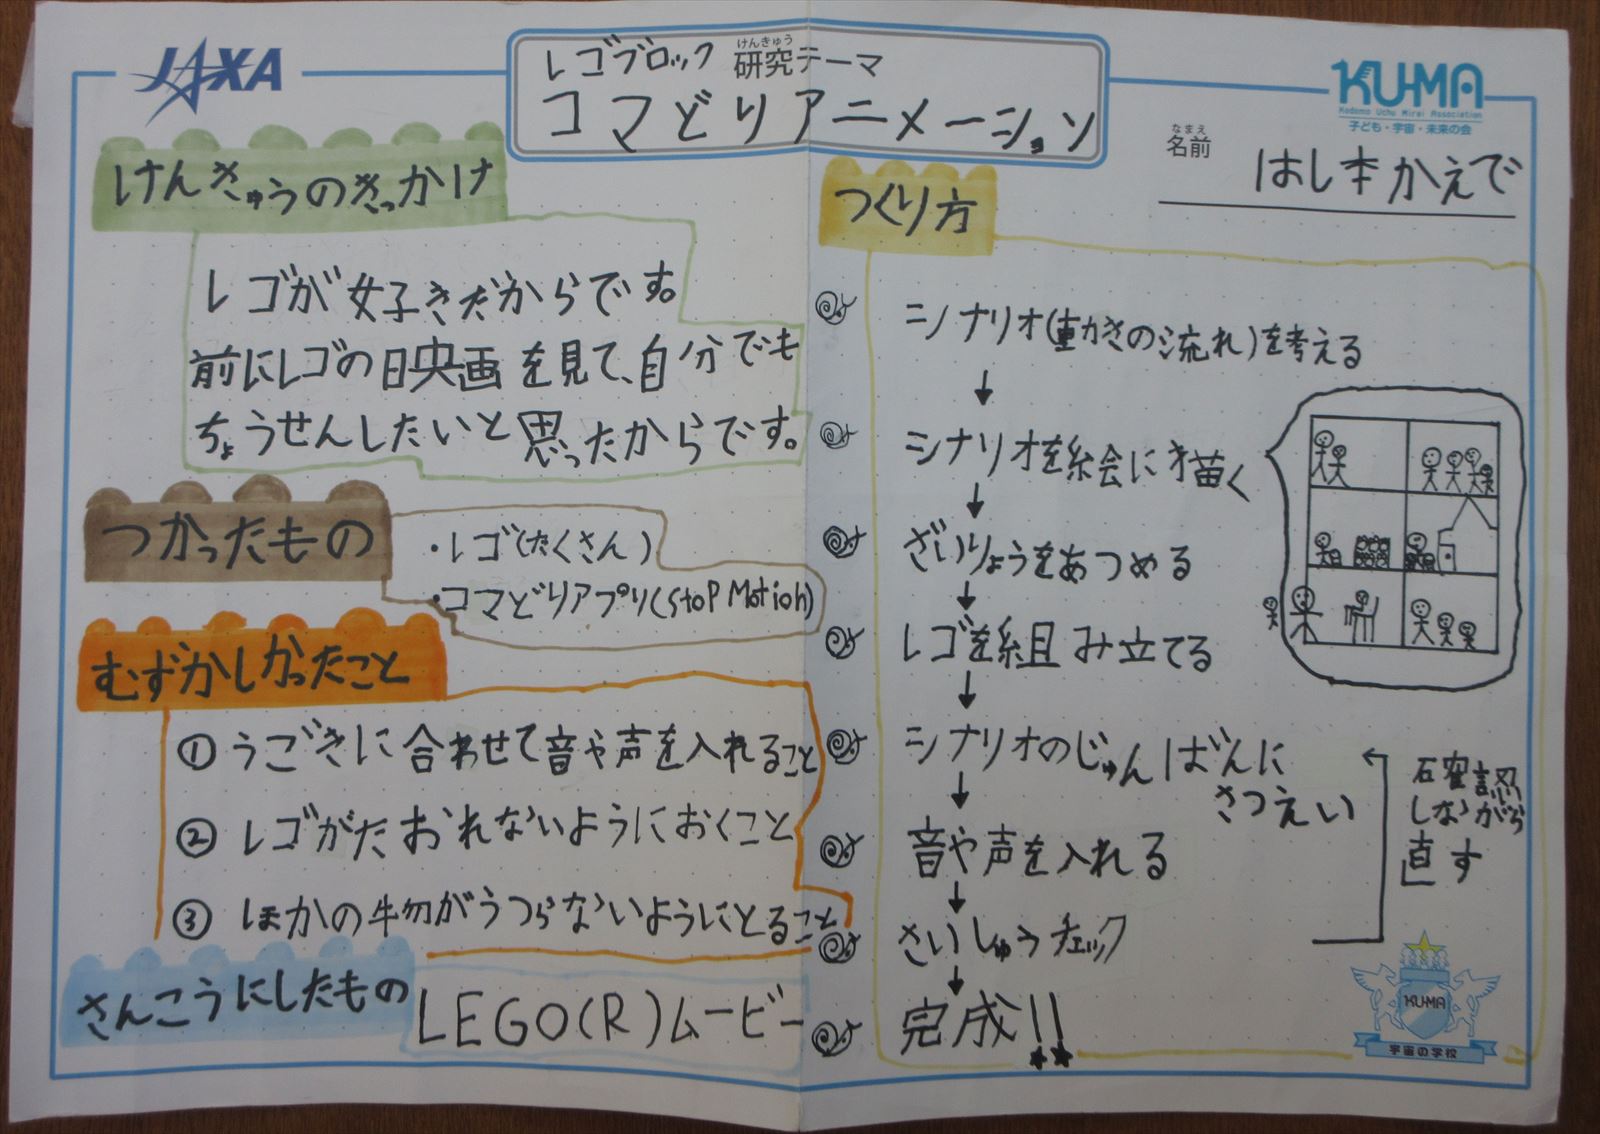 JAXA
レゴブロック 研究テーマ
けんきゅう
コマどりアニメーション
KU-MA
Kodomo Uchu Mirai Association
子ども・宇宙・未来の会
なまえ
名前
はし本かえで
けんきゅうのきっかけ
レゴが好きだからです。
前にレゴの映画を見て、自分でも
ちょうせんしたいと思ったからです。
つかったもの
・レゴ(たくさん)
・コマどりアプリ(StoP Motion)
むずかしかったこと
① うごきに合わせて音や声を入れること
② レゴがたおれないようにおくこと
③ ほかの物がうつらないようにとること
さんこうにしたもの
LEGO(R)ムービー
つくり方
シナリオ(動きの流れ)を考える
↓
シナリオを絵に描く
↓
ざいりょうをあつめる
↓
レゴを組み立てる
↓
シナリオのじゅんばんに
さつえい
↓
音や声を入れる
↓
さいしゅうチェック
↓
完成!!
確認
しながら
直す
KU-MA
宇宙の学校